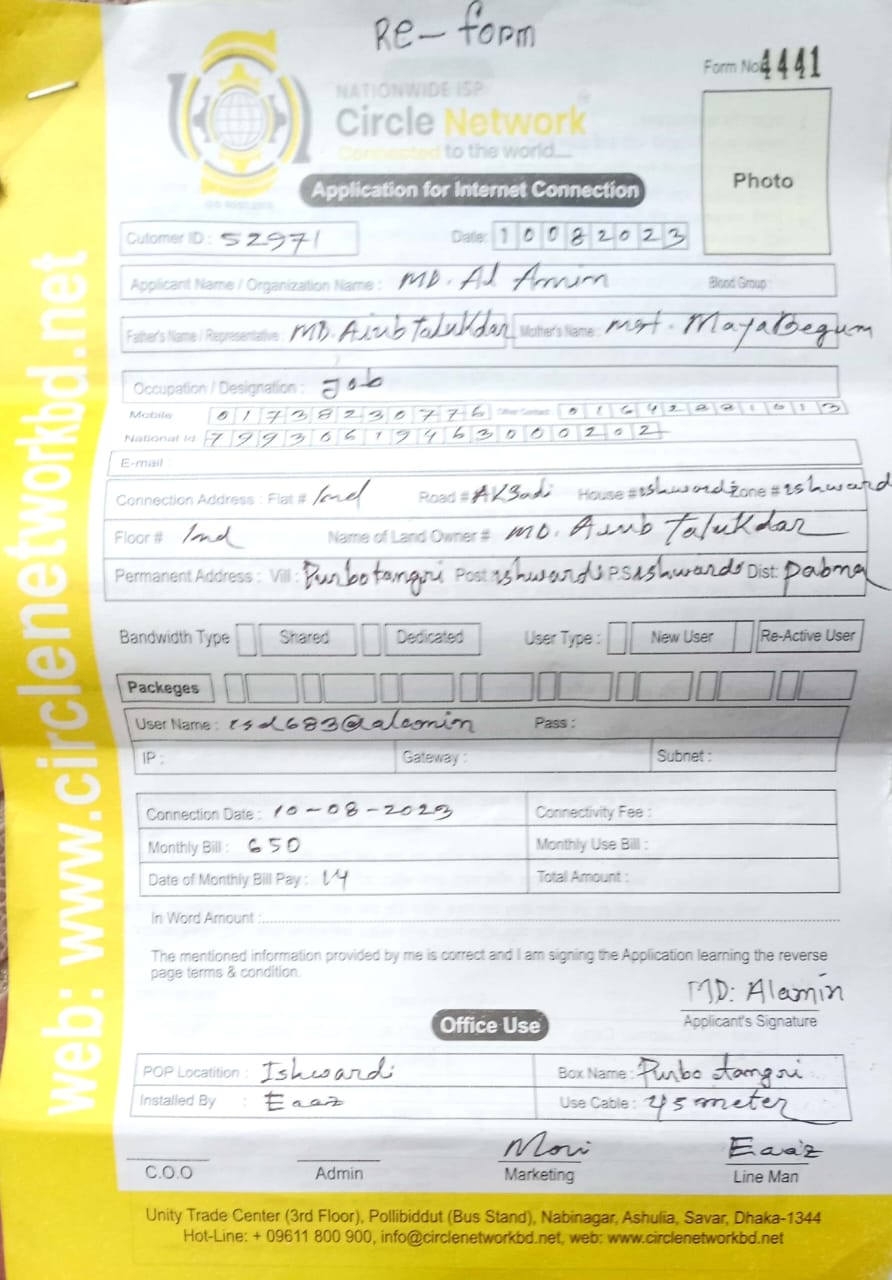 Re-form
Form No 4441
NATIONWIDE ISP
Circle Network
Connected to the world....
Application for Internet Connection
Photo
Cutomer ID : 52971 Date: 10082023
Applicant Name / Organization Name : MD. Al Amin Blood Group :
Father's Name / Representative : MD. Aiub Talukdar Mother's Name : Mst. Maya Begum
Occupation / Designation : Job
Mobile 01738230776 Other Contact 01642881013
National Id 19930619463000202
E-mail :
Connection Address : Flat # Ind Road # House # ishwardi Zone # ishward
Floor # Ind Name of Land Owner # MD. Aiub Talukdar
Permanent Address : Vill : Purbotangri Post ishwardi P.S ishwardi Dist: Pabna
Bandwidth Type Shared Dedicated User Type : New User Re-Active User
Packeges
User Name : isd683@alamin Pass :
IP : Gateway : Subnet :
Connection Date : 10-08-2023 Connectivity Fee :
Monthly Bill : 650 Monthly Use Bill :
Date of Monthly Bill Pay : 14 Total Amount :
In Word Amount :
The mentioned information provided by me is correct and I am signing the Application learning the reverse
page terms & condition.
MD: Alamin
Applicant's Signature
Office Use
POP Locatition : Ishwardi Box Name : Purbo tangri
Installed By : Eaaz Use Cable : 45 meter
Moni Eaaz
C.O.O Admin Marketing Line Man
web: www.circlenetworkbd.net
Unity Trade Center (3rd Floor), Pollibiddut (Bus Stand), Nabinagar, Ashulia, Savar, Dhaka-1344
Hot-Line: + 09611 800 900, info@circlenetworkbd.net, web: www.circlenetworkbd.net